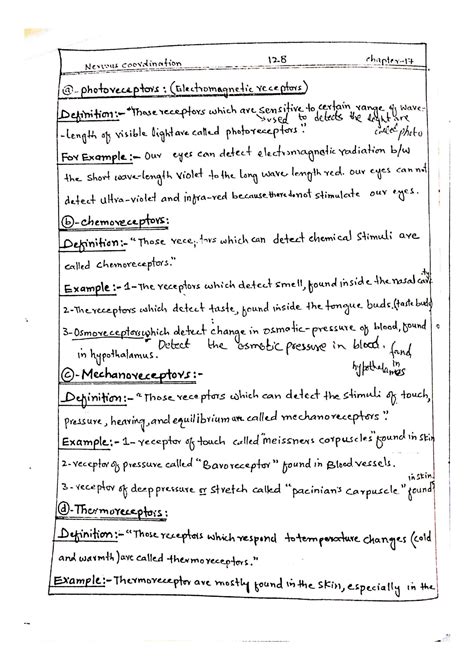 Nervous Coordination 128 Chapter-17
ⓐ-photoreceptors: (Electromagnetic receptors)
Definition:- "Those receptors which are sensitive to certain range of wave-
-length of visible light are called photoreceptors."
used to detects the light are
called photo
For Example:- Our eyes can detect electromagnetic radiation b/w
the short wave-length violet to the long wave length red. our eyes can not
detect Ultra-violet and infra-red because there do not stimulate our eyes.
ⓑ-chemoreceptors:
Definition:- "Those receptors which can detect chemical stimuli are
called Chemoreceptors."
Example:- 1-The receptors which detect smell, found inside the nasal cavity
2-The receptors which detect taste, found inside the tongue buds.(taste buds)
3-Osmoreceptors which detect change in osmotic-pressure of blood, found
in hypothalamus. Detect the osmotic pressure in blood. fand
in
hypothelamas
ⓒ-Mechanoreceptors:-
Definition:- "Those receptors which can detect the stimuli of touch,
pressure, hearing, and equilibrium are called mechanoreceptors".
Example:- 1- receptor of touch called "meissners corpuscles" found in skin
2-receptor of pressure called "Baroreceptor" found in Blood vessels.
3-receptor of deep pressure or stretch called "pacinian's Carpuscle" found
in skin
ⓓ-Thermoreceptors:
Definition:- "Those receptors which respond to temperature changes (cold
and warmth) are called thermoreceptors."
Example:- Thermoreceptor are mostly found in the skin, especially in the